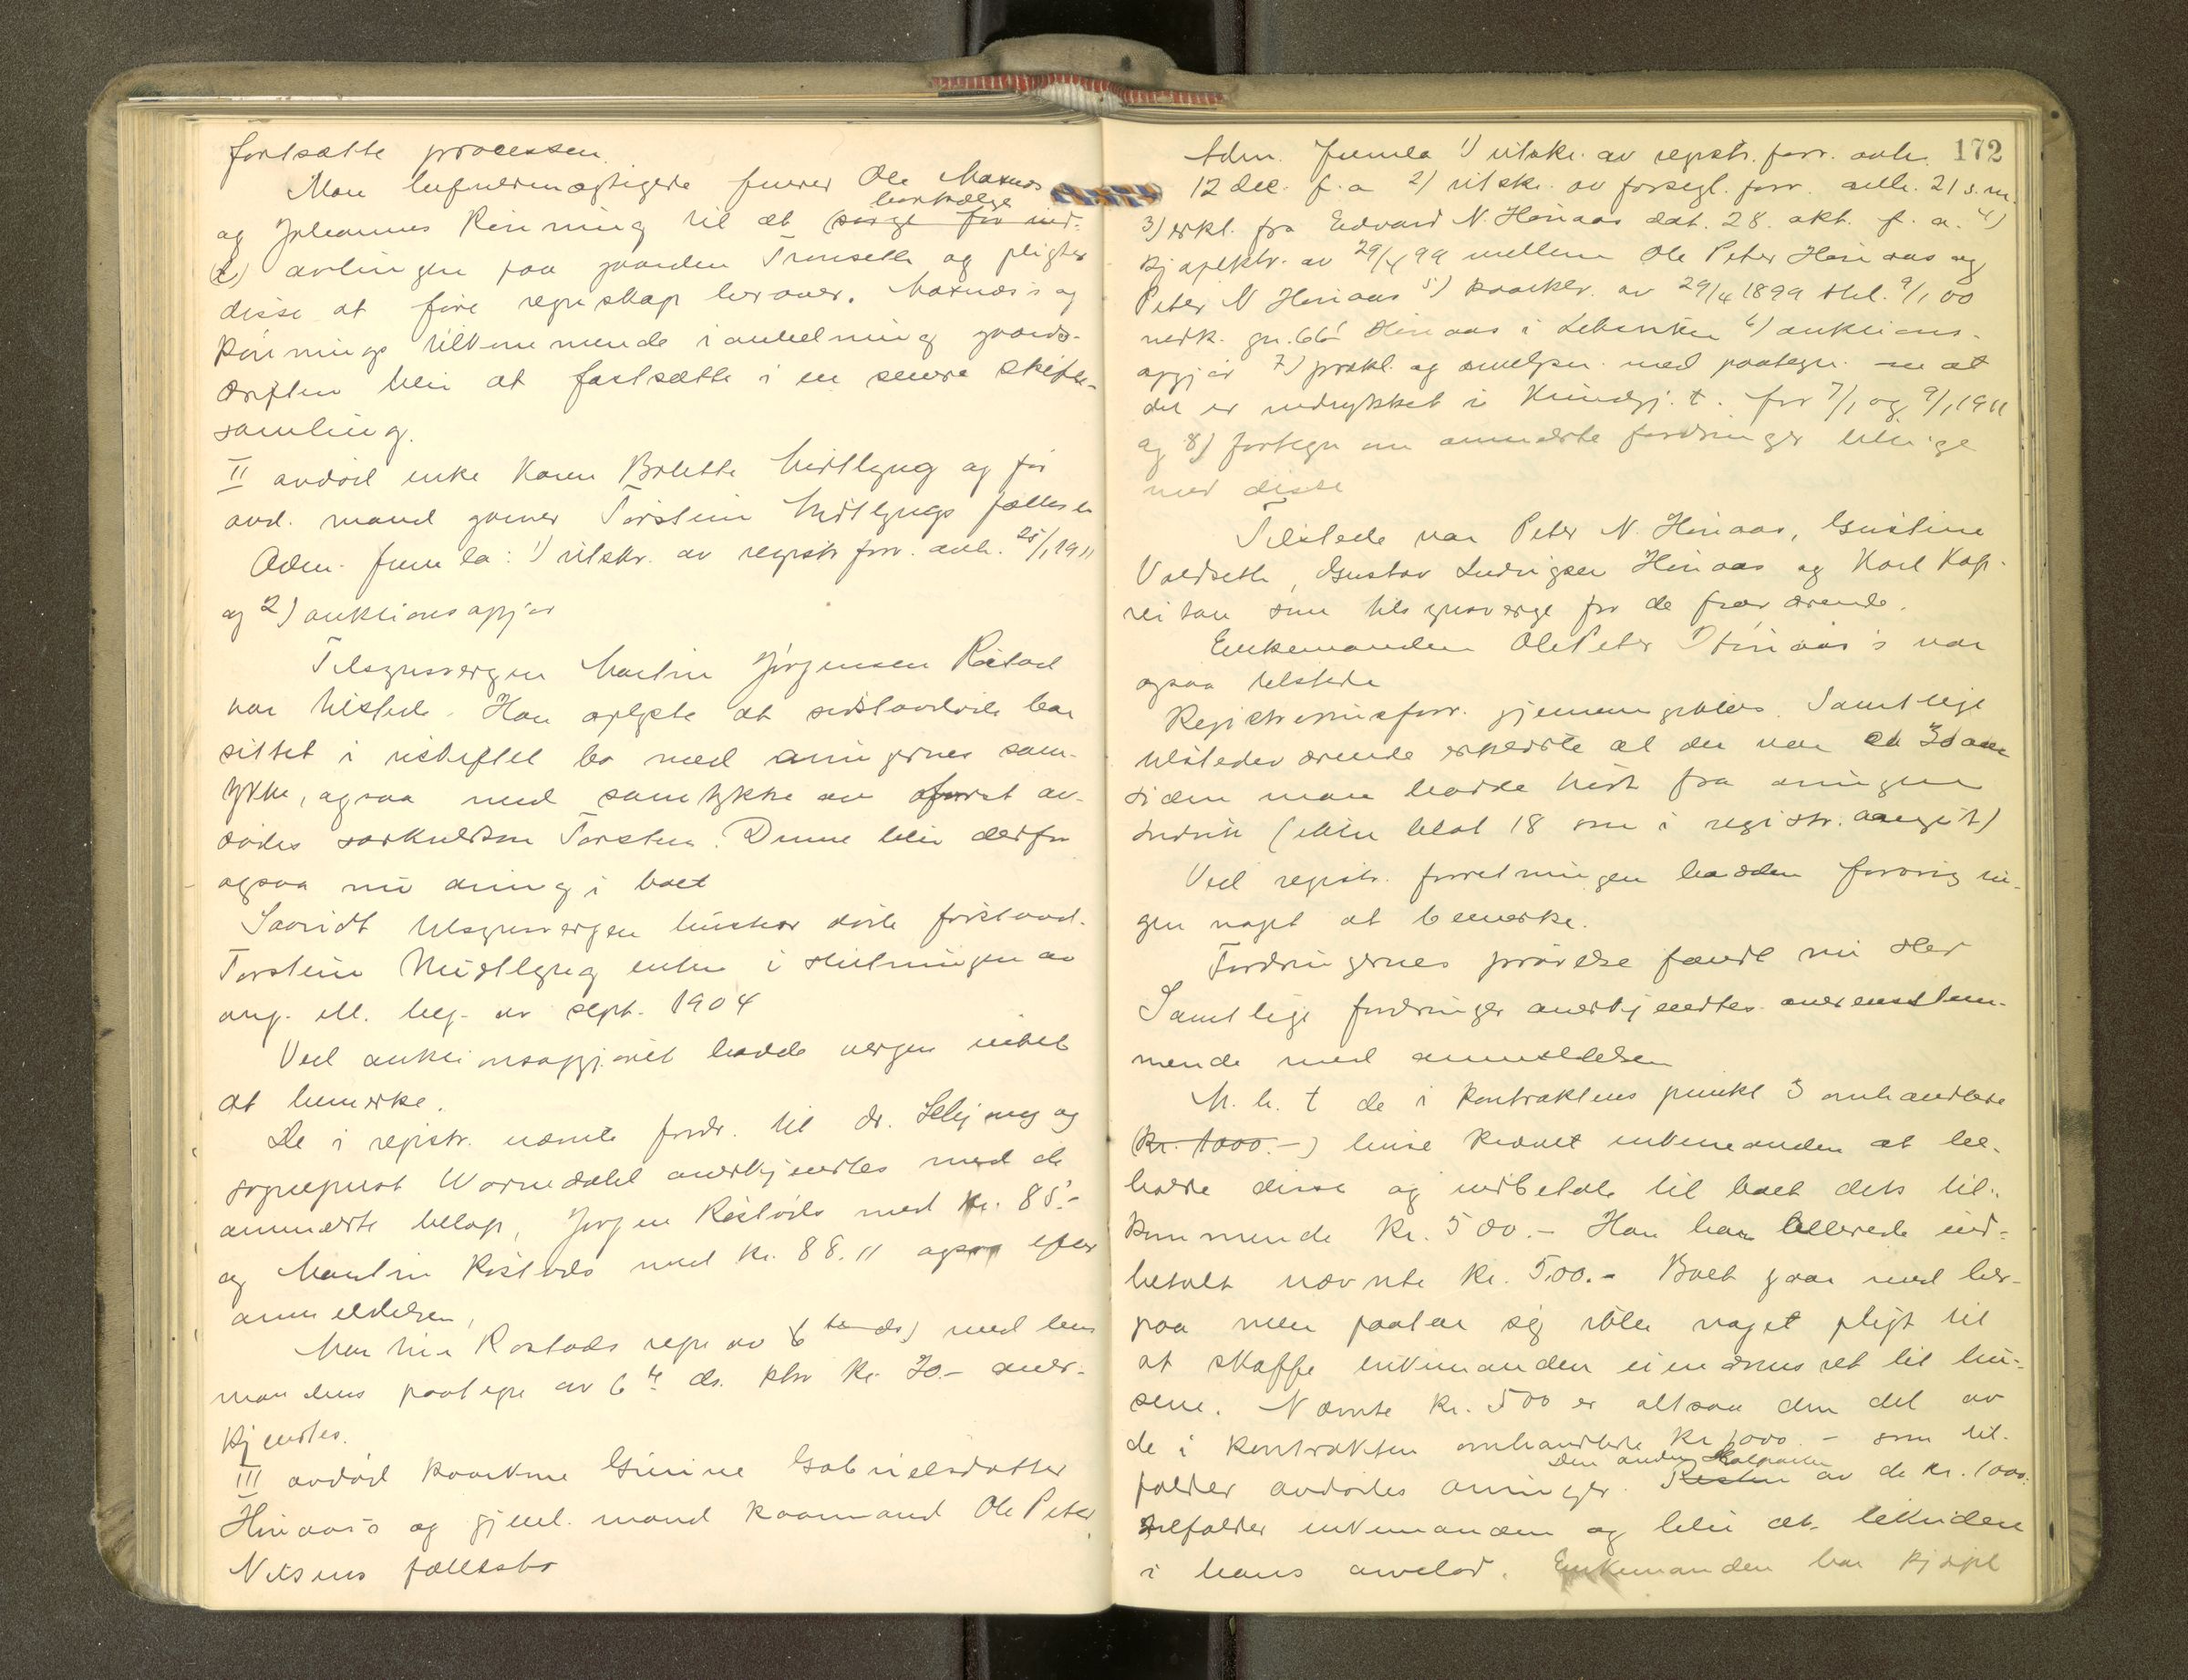 fortsætte processen.
Man befuldmægtigede  Ole Moxnes
bortsælge
og Johannes Rönning til at (sørge for ind-
avlingen paa gaarden Tronseth og pligter
disse at före regnskap herover. Moxnes's og
Rönnings tilkommende i anledning gaards-
driften blir at fastsætte i en senere skifte-
samling.
II avdöd enke Karen Bolette Midtlyng og før
avd. mand gaardbr. Torstein Midtlyngs fællesbo
Adm. fremla: 1) utskr. av registr. forr. avh. 25/1 1911
og 2) auktionsopgjør
Tilsynsvergen Martin Jørgensen Röstad
var tilstede. Han oplyste at sidstavdöde har
sittet i uskiftet bo med arvingernes sam-
tykke, ogsaa med samtykke av først av-
dödes særkuldsön Torstein. Denne blir derfor
ogsaa nu arving i boet
Saavidt tilsynsvergen husker döde förstavd.
Torstein Midtlyng enten i slutningen av
aug. ell. beg. av sept. 1904
Ved auktionsopgjøret hadde vergen intet
at bemerke.
De i registr. nævnte fordr. til dr.  og
sogneprest Wormdahl anerkjendtes med de
anmeldte beløp, Jørgen Röstads med kr. 85.-
og Martin Röstads med kr. 88.11 ogsaa efter
anmeldelsen,
Martin Rostads regn. av 6te ds) med lens
mandens paategn. av 6te ds. stor kr. 20.- aner-
kjendtes.
III avdöd kaarkone Gurine Gabrielsdatter
Hinaas's og gjenl. mand kaarmand Ole Peter
Nilsens fællesbo
172
Adm. fremla 1) utskr. av registr. forr. avh.
12 dec. f.a 2) utskr. av forsegl. forr. avh. 21 s.m.
3) erkl. fra Edvard N. Hinaas dat. 28. okt. f. a. 4)
kjøpektr. av 29/4 99 mellem Ole Peter Hinaas og
Peter N Hinaas 5) kaarktr. av 29/4 1899 thl. 9/1 00
vedk. gn. 66 Hinaas i Leksviken 6) auktions-
opgjør 7) prokl. og  med paategn. om at
det er indrykket i Kundgj.t. for 7/1 og 9/1 1911
og 8) fortegn. over anmeldte fordringer tillige
med disse
Tilstede var Peter N. Hinaas, Gustine
Voldseth, Gustav Ludvigsen Hinaas og Karl Kop-
reitan som tilsynsverge for de fraværende.
Enkemanden Ole Peter Hinaas's var
ogsaa tilstede
Registreringsforr. gjennemgikkes. Samtlige
tilstedeværende erklærte at det var ca 30 aar
siden man hadde hørt fra arvingen
Indrik (ikke blot 18 som i registr. angit)
Ved registr. forretningen hadde forøvrig in-
gen noget at bemerke.
Fordringernes prøvelse fandt nu sted
Samtlige fordringer anerkjendtes overensstem-
mende med anmeldelsen
M. h. t de i kontraktens punkt 3 omhandlede
(kr. 1000.-) huse krævet enkemanden at be-
holde disse og indbetale til boet dets til-
kommende kr. 500.- Han har allerede ind-
betalt nævnte kr. 500.- Boet gaar med her-
paa men paatar sig ikke noget pligt til
at skaffe enkemanden eiendomsret til hu-
sene. Nævnte kr. 500 er altsaa den del av
de i kontrakten omhandlede kr 1000.- som til-
Den anden Halvparten
falder avdödes arvinger. Resten av de kr. 1000.
tilfalder enkemanden og blir at likvidere
i hans arvelod. Enkemanden har kjøpt